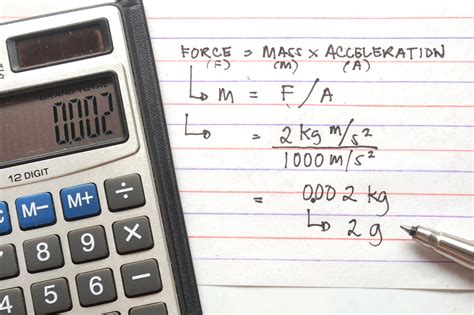 0.002
12 DIGIT
M- M+ ÷
8 9 ×
5 6 -
4
FORCE = MASS × ACCELERATION
(F) (M) (A)
↳ M = F/A
↳ = 2 kg m/s²
1000 m/s²
= 0.00 2 kg
↳ 2 g